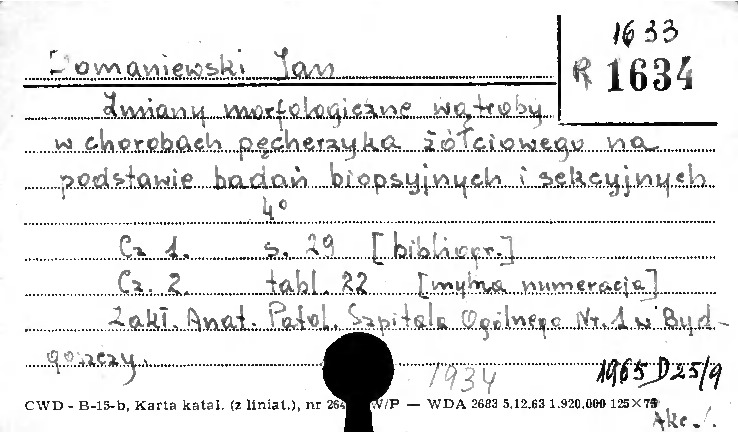 1633
Domaniewski Jan
R 1634
Zmiany morfologiczne wątroby
w chorobach pęcherzyka żółciowego na
podstawie badań biopsyjnych i sekcyjnych
4°
Cz 1. s. 29 [bibliogr.]
Cz. 2. tabl. 22 [mylna numeracja]
Zakł. Anat. Patol. Szpitala Ogólnego Nr. 1 w Byd-
goszczy.
1934 1965 D 25/9
CWD - B-15-b, Karta katal. (z liniat.), nr 264 W/P — WDA 2683 5.12.63 1.920.000 125×75
Akc.